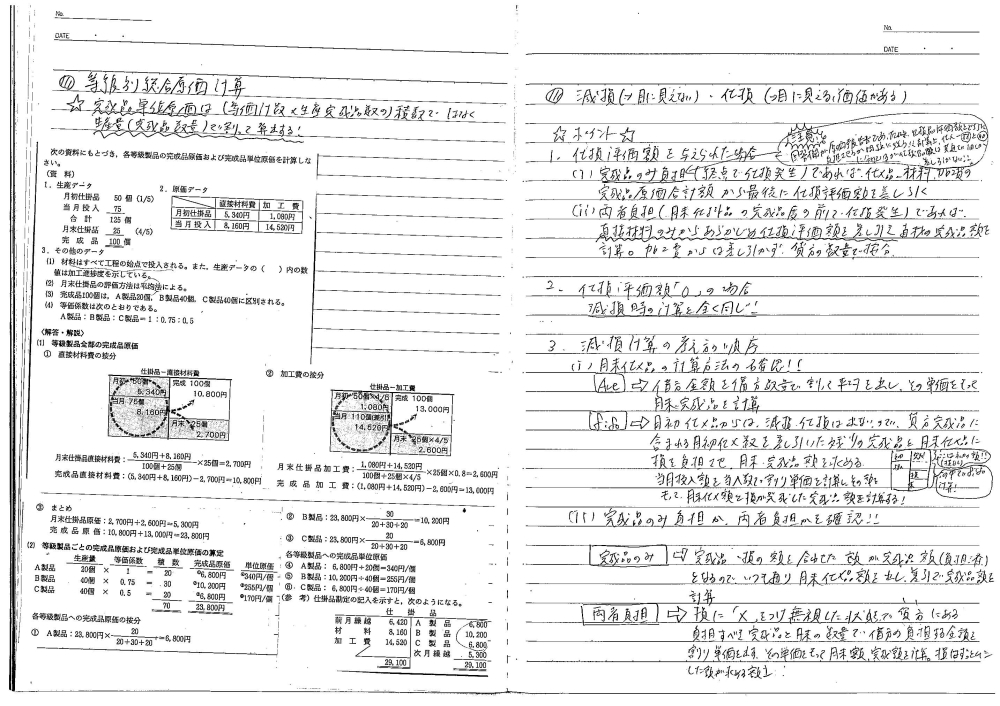 No.
DATE
⑪ 等級別総合原価計算
☆ 完成品単位原価は(等価係数×生産完成品数の)積数で はなく
生産量(完成品数量)で割って算出する!
次の資料にもとづき、各等級製品の完成品原価および完成品単位原価を計算しな
さい。
(資 料)
1.生産データ
月初仕掛品 50個 (1/5)
当月投入 75
合 計 125個
月末仕掛品 25 (4/5)
完 成 品 100個
2.原価データ
直接材料費 加 工 費
月初仕掛品 5,340円 1,080円
当月投入 8,160円 14,520円
3.その他のデータ
(1) 材料はすべて工程の始点で投入される。また、生産データの( )内の数
値は加工進捗度を示している。
(2) 月末仕掛品の評価方法は平均法による。
(3) 完成品100個は、A製品20個、B製品40個、C製品40個に区別される。
(4) 等価係数は次のとおりである。
A製品:B製品:C製品=1:0.75:0.5
〈解答・解説〉
(1) 等級製品全部の完成品原価
① 直接材料費の按分
仕掛品-直接材料費
月初 50個
5,340円
当月 75個
8,160円
完成 100個
10,800円
月末 25個
2,700円
月末仕掛品直接材料費:5,340円+8,160円/100個+25個×25個=2,700円
完成品直接材料費:(5,340円+8,160円)-2,700円=10,800円
② 加工費の按分
仕掛品-加工費
月初 50個×1/5
1,080円
当月 110個(差引)
14,520円
完成 100個
13,000円
月末 25個×4/5
2,600円
月末仕掛品加工費:1,080円+14,520円/100個+25個×4/5×25個×0.8=2,600円
完成品加工費:(1,080円+14,520円)-2,600円=13,000円
③ まとめ
月末仕掛品原価:2,700円+2,600円=5,300円
完成品原価:10,800円+13,000円=23,800円
(2) 等級製品ごとの完成品原価および完成品単位原価の算定
生産量 等価係数 積 数 完成品原価 単位原価
A製品 20個 × 1 = 20 ①6,800円 ④340円/個
B製品 40個 × 0.75 = 30 ②10,200円 ⑤255円/個
C製品 40個 × 0.5 = 20 ③6,800円 ⑥170円/個
70 23,800円
各等級製品への完成品原価の按分
① A製品:23,800円×20/20+30+20=6,800円
② B製品:23,800円×30/20+30+20=10,200円
③ C製品:23,800円×20/20+30+20=6,800円
各等級製品への完成品単位原価
④ A製品:6,800円÷20個=340円/個
⑤ B製品:10,200円÷40個=255円/個
⑥ C製品:6,800円÷40個=170円/個
(参 考) 仕掛品勘定の記入を示すと、次のようになる。
仕 掛 品
前月繰越 6,420 A 製 品 6,800
材 料 8,160 B 製 品 10,200
加 工 費 14,520 C 製 品 6,800
次月繰越 5,300
29,100 29,100
No.
DATE
減損(⇒目に見えない)・仕損(⇒目に見える価値がある)
☆ポイント☆
1.仕損評価額を与えられた場合
(i) 完成品のみ負担(終点で仕損発生)であれば、仕化品・材料、加工費の
完成品原価合計額 から最後に仕損評価額を差し引く
(ii) 両者負担(月末仕掛品の完成品の前で仕損発生)であれば、
直接材料のみからあらかじめ仕損評価額を差し引き 直材の完成品額を
計算。加工費からは差し引かず、貸方の数量で按分
2.仕損評価額「0」の場合
減損時の計算と全く同じ!!
3.減損計算の考え方の順序
(i) 月末仕×品の計算方法の確認!!
Ave ⇒ 借方金額を借方数量で割って平均を出し、その単価をもって
月末・完成品を計算
fifo ⇒ 月初仕×品からは、減損・仕損は出ないので、貸方完成品に
含まれる月初仕×数を差し引いた残りの完成品と月末仕×品に
損を負担させ、月末・完成品額を求める
当月投入額を当入数で割り単価を計算し、その額を
もって、月末仕×額と損が完成した完成品額を計算する!
(ii) 完成品のみ負担か、両者負担かを確認!!
完成品のみ ⇒ 完成品・損の額を合わせた額が完成品額(負担済)
となるので、いつも通り月末仕×品額を出し、差引で完成品額を
計算
両者負担 ⇒ 損に「×」をつけ無視した状態で貸方にある
負担すべき完成品と月末の数量で借方の負担する金額を
割り単価を出す。その単価をもって月末額、完成額を計算。